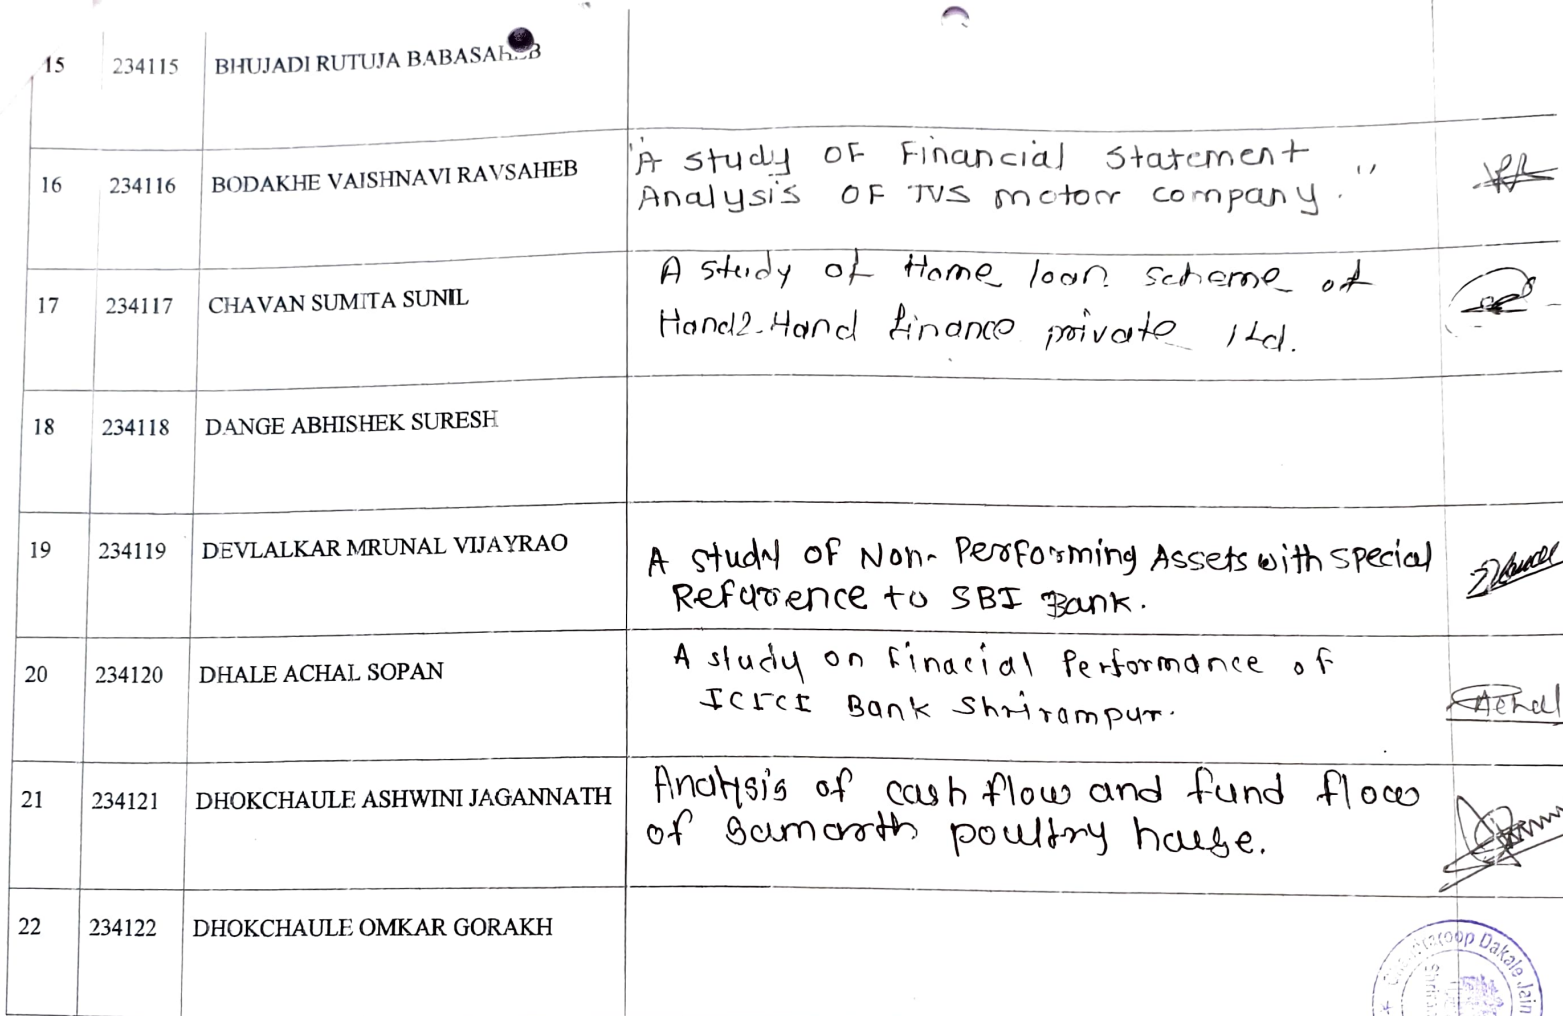 15 234115 BHUJADI RUTUJA BABASAHEB
16 234116 BODAKHE VAISHNAVI RAVSAHEB "A study OF Financial Statement
Analysis OF TVS motorr company."
17 234117 CHAVAN SUMITA SUNIL A study of Home loan scheme of
Hand2-Hand finance private ltd.
18 234118 DANGE ABHISHEK SURESH
19 234119 DEVLALKAR MRUNAL VIJAYRAO A study OF Non-Performing Assets with special
Reference to SBI Bank.
20 234120 DHALE ACHAL SOPAN A study on Finacial Performance of
ICICI Bank Shrirampur.
Achal
21 234121 DHOKCHAULE ASHWINI JAGANNATH Analysis of cash flow and fund flow
of samarth poultry house.
22 234122 DHOKCHAULE OMKAR GORAKH
Dakale Jain